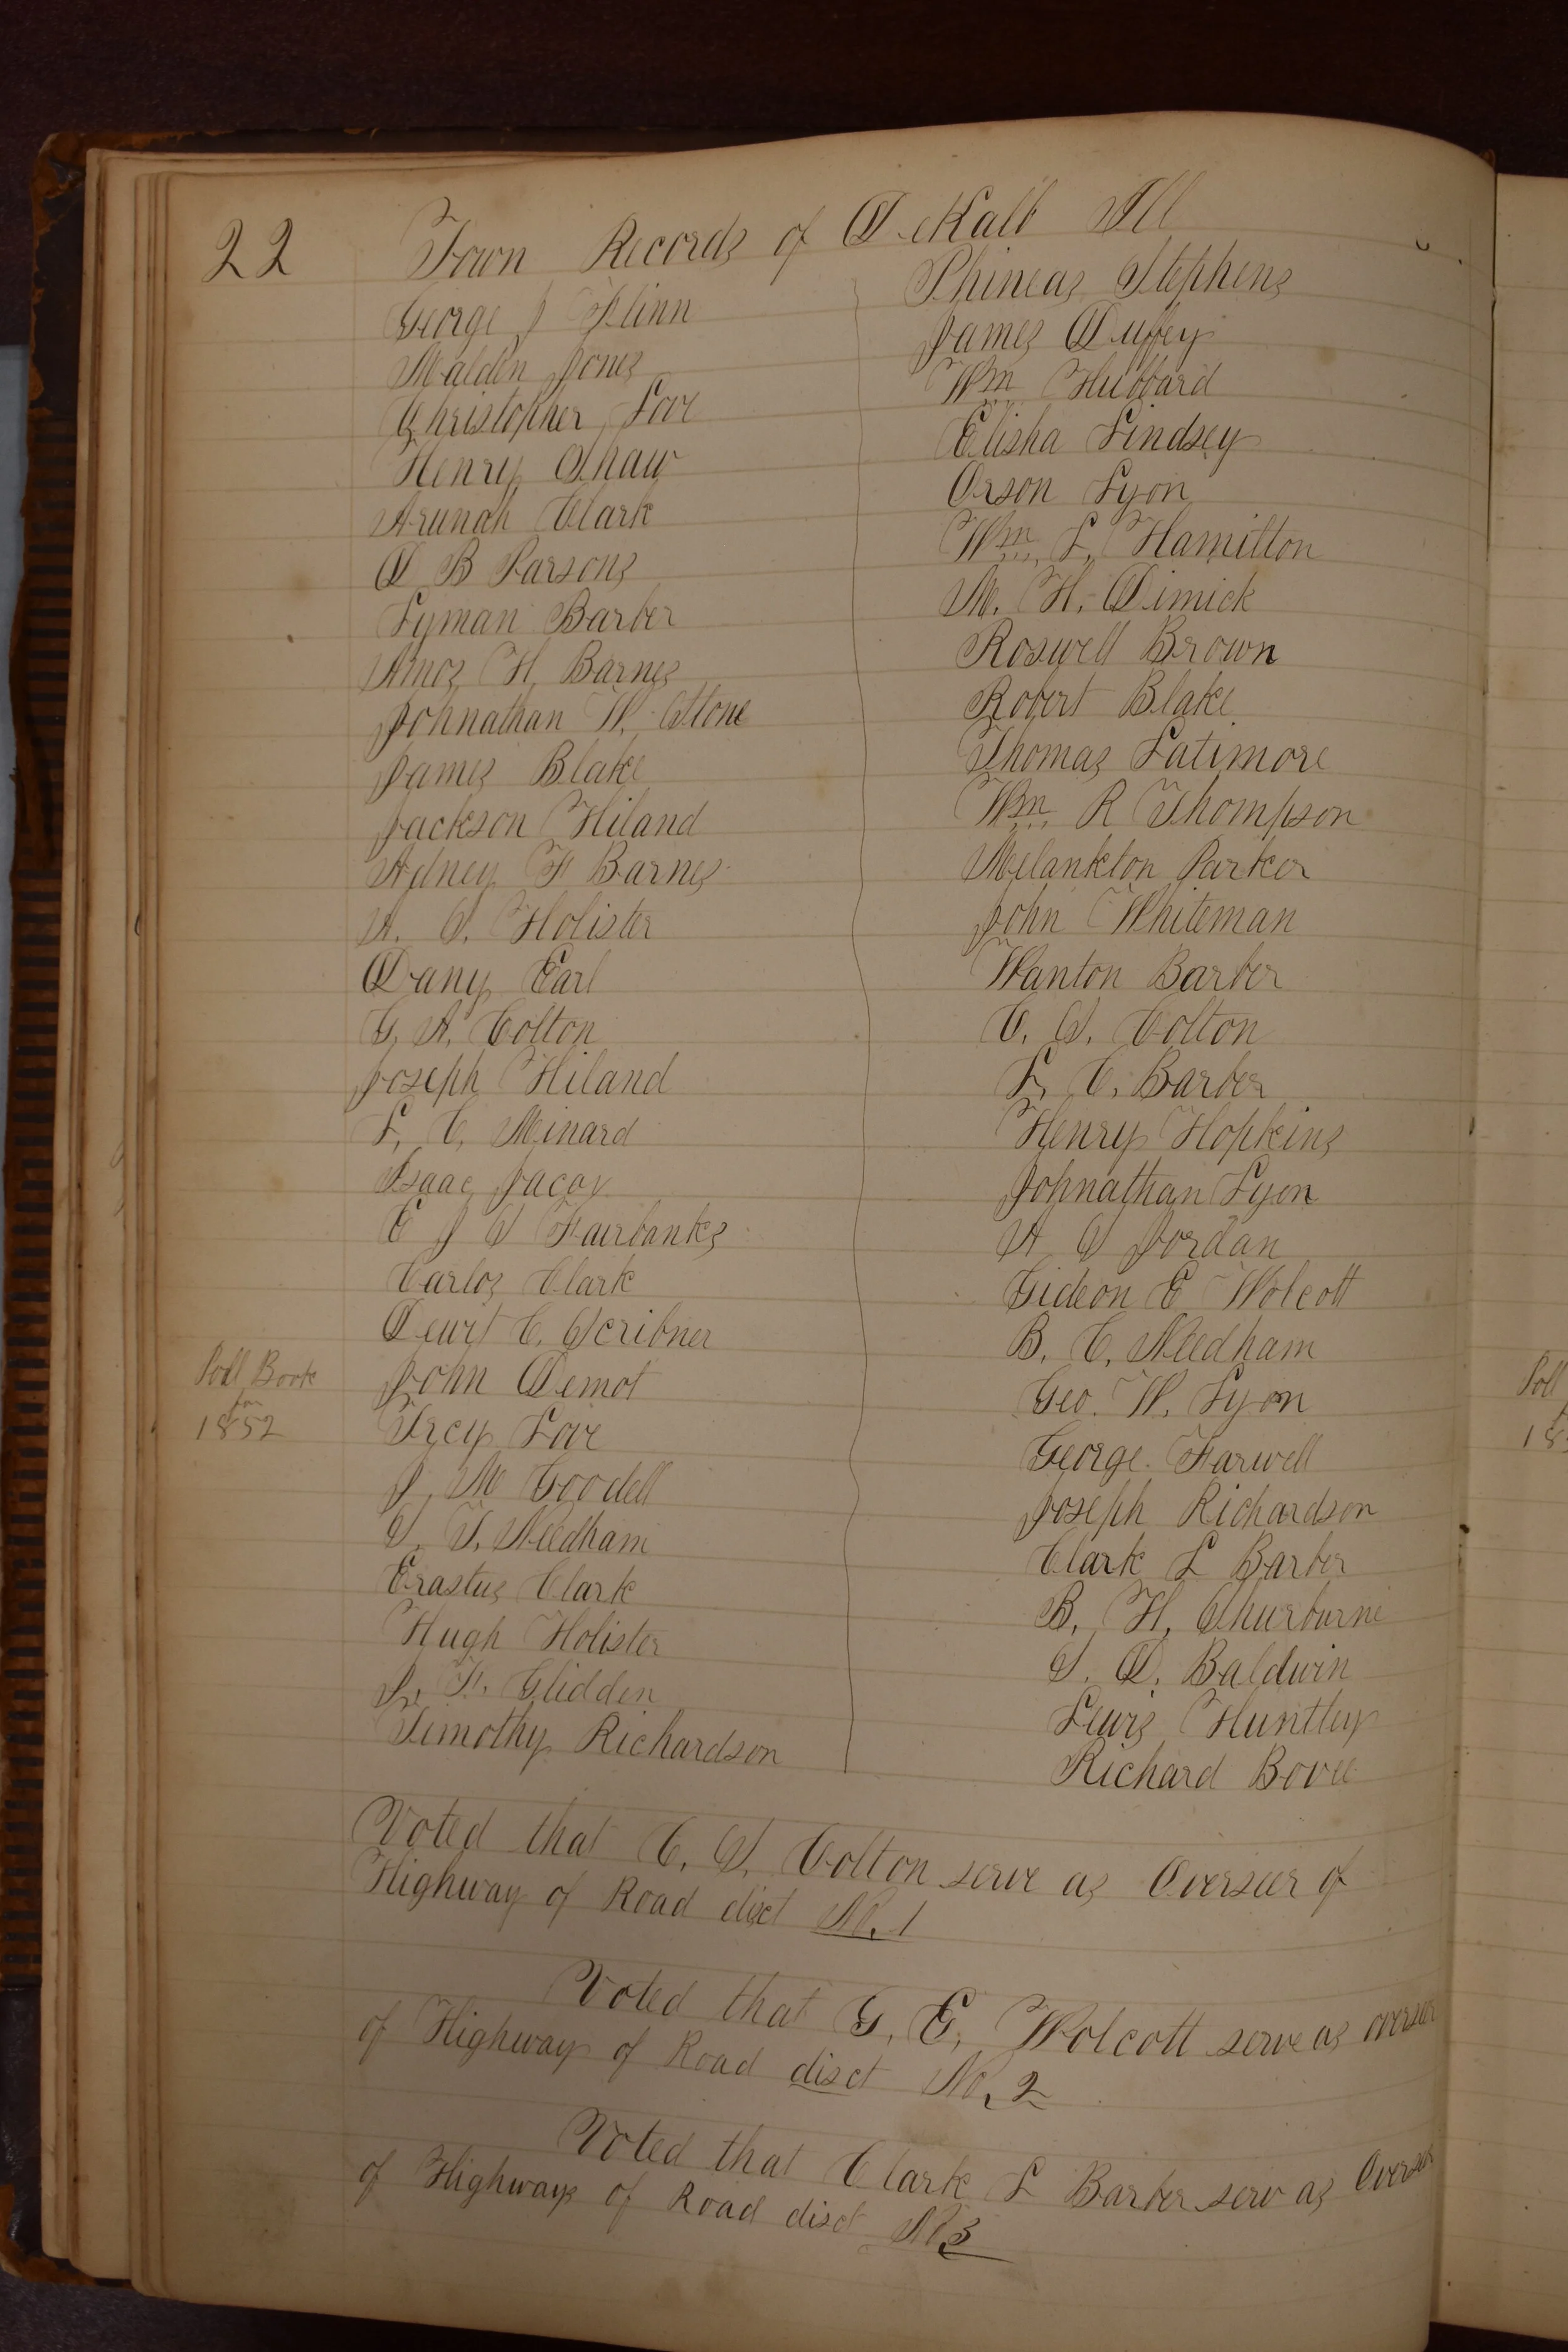 22
Town Records of DeKalb Ill
George J Flinn
Malden Jones
Christopher Love
Henry Shaw
Arunah Clark
D B Parsons
Lyman Barber
Amos H. Barnes
Johnathan W. Stone
James Blake
Jackson Hiland
Adney F Barnes
A. S. Holister
Dany Earl
G. A. Colton
Joseph Hiland
L. C. Minard
Isaac Jacox
E J S Fairbanks
Carlos Clark
Dewit C. Scribner
John Demot
Ircy Love
J. M Goodell
S. T. Needham
Erastus Clark
Hugh Holister
J. F. Glidden
Timothy Richardson
Poll Book
for
1852
Phineas Stephens
James Duffey
Wm Hubbard
Elisha Lindsey
Orson Lyon
Wm L. Hamilton
M. H. Dimick
Roswell Brown
Robert Blake
Thomas Latimore
Wm R Thompson
Melankton Parker
John Whiteman
Wanton Barber
C. S. Colton
L. C. Barber
Henry Hopkins
Johnathan Lyon
A S Jordan
Gideon E Wolcott
B. C. Needham
Geo. W. Lyon
George Farwell
Joseph Richardson
Clark L Barber
B. H. Shurburne
S. D. Baldwin
Lewis Huntley
Richard Bovee
Voted that C. S. Colton serve as Overseer of
Highway of Road disct No. 1
Voted that G. E. Wolcott serve as overseer
of Highway of Road disct No. 2
Voted that Clark L Barber serv as Overseer
of Highway of Road disct No 3
Poll